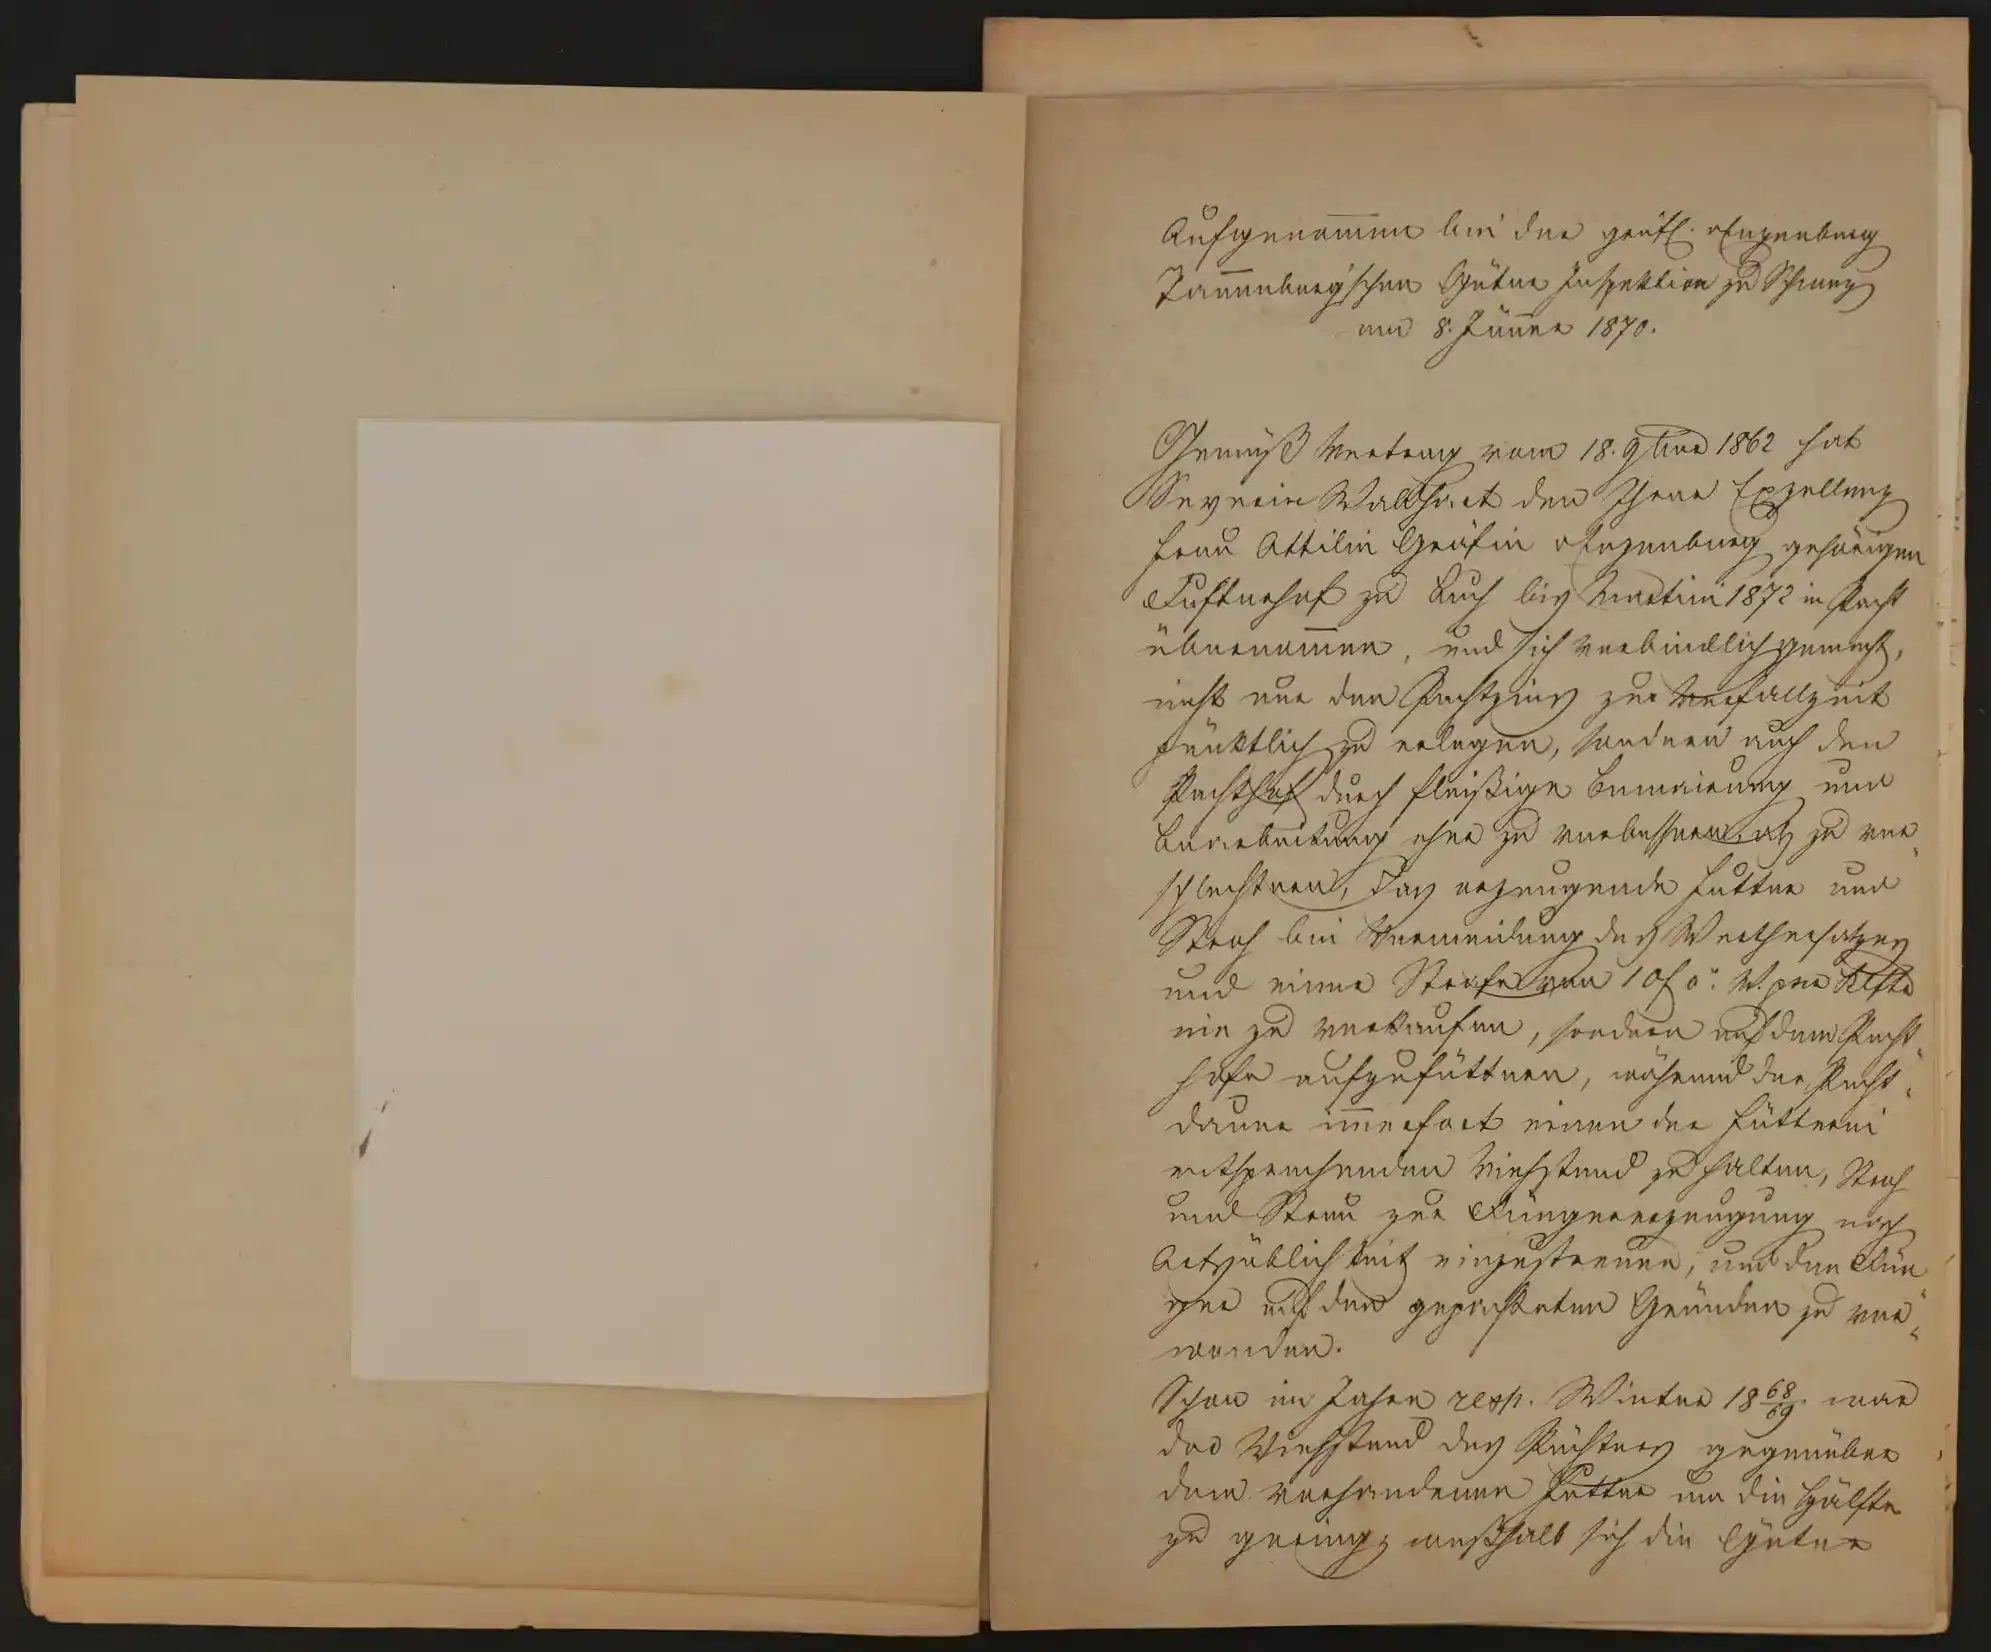 Aufgenommen bei der gräfl. Enzenberg
Tannenberg'schen Güter Inspektion zu Schwaz
am 8. Jänner 1870.
Gemäß Vertrag vom 18. 9ber 1862 hat
Severin Wallhart den Ihrer Exzellenz
Frau Ottilie Gräfin Enzenberg gehörigen
hof zu Buch bis Martini 1872 in Pacht
übernommen, und sich verbindlich gemacht,
nicht nur den Pachtzins zur Verfallzeit
pünktlich zu erlegen, sondern auch den
Pachthof durch fleißige Bemaierung und
Bearbeitung eher zu verbessern als zu ver„
schlechtern, das erzeugende Futter und
Stroh bei Vermeidung des Werthersatzes
und einer Strafe von 10 f ö. W. pro
nie zu verkaufen, sondern auf dem Pacht„
hofe aufzufüttern, während der Pacht„
dauer immerfort einen der Fütterei
entsprechenden Viehstand zu halten, Stroh
und Streu zur Düngererzeugung nach
Ortsüblichkeit einzustreuen, und den Dün„
ger auf den gepachteten Gründen zu ver„
wenden.
Schon im Jahre resp. Winter 18 68/69 war
der Viehstand des Pächters gegenüber
dem vorhandenen Futter um die Hälfte
zu gering, weßhalb sich die Güter